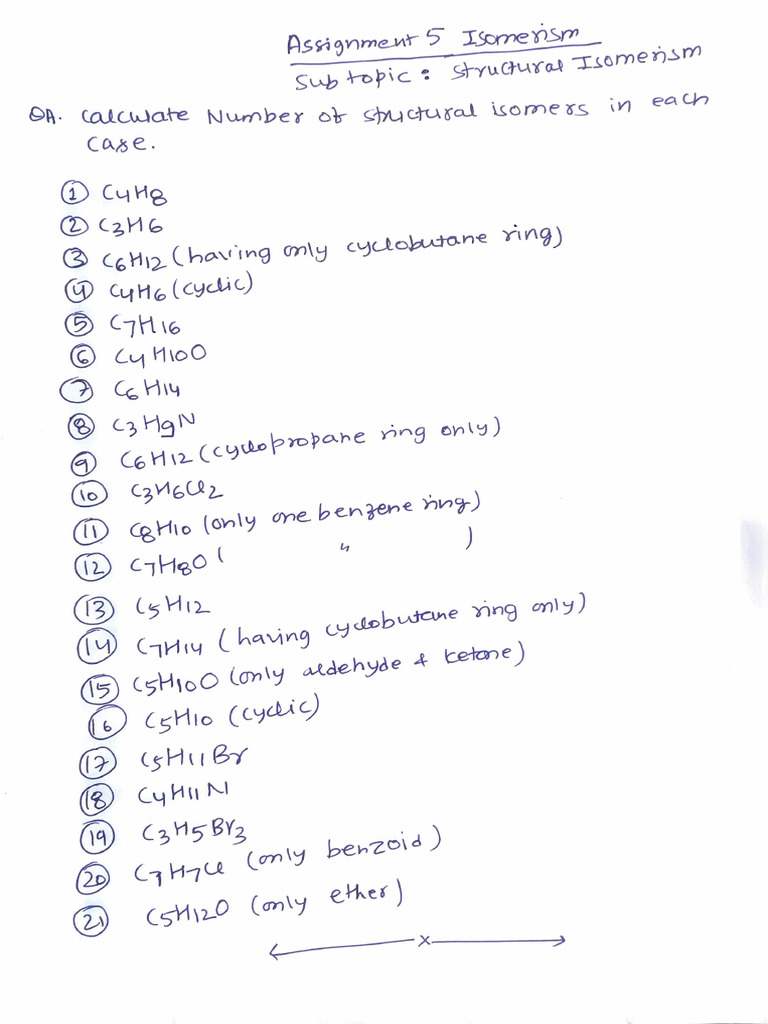 Assignment 5 Isomerism
Sub topic: Structural Isomerism
QA. Calculate Number of structural isomers in each
case.
① C4H8
② C3H6
③ C6H12 (having only cyclobutane ring)
④ C4H6 (cyclic)
⑤ C7H16
⑥ C4H10O
⑦ C6H14
⑧ C3H9N
⑨ C6H12 (cyclopropane ring only)
⑩ C3H6Cl2
⑪ C8H10 (only one benzene ring)
⑫ C7H8O ( " )
⑬ C5H12
⑭ C7H14 (having cyclobutane ring only)
⑮ C5H10O (only aldehyde & ketone)
⑯ C5H10 (cyclic)
⑰ C5H11Br
⑱ C4H11N
⑲ C3H5Br3
⑳ C7H7Cl (only benzoid)
㉑ C5H12O (only ether)
x